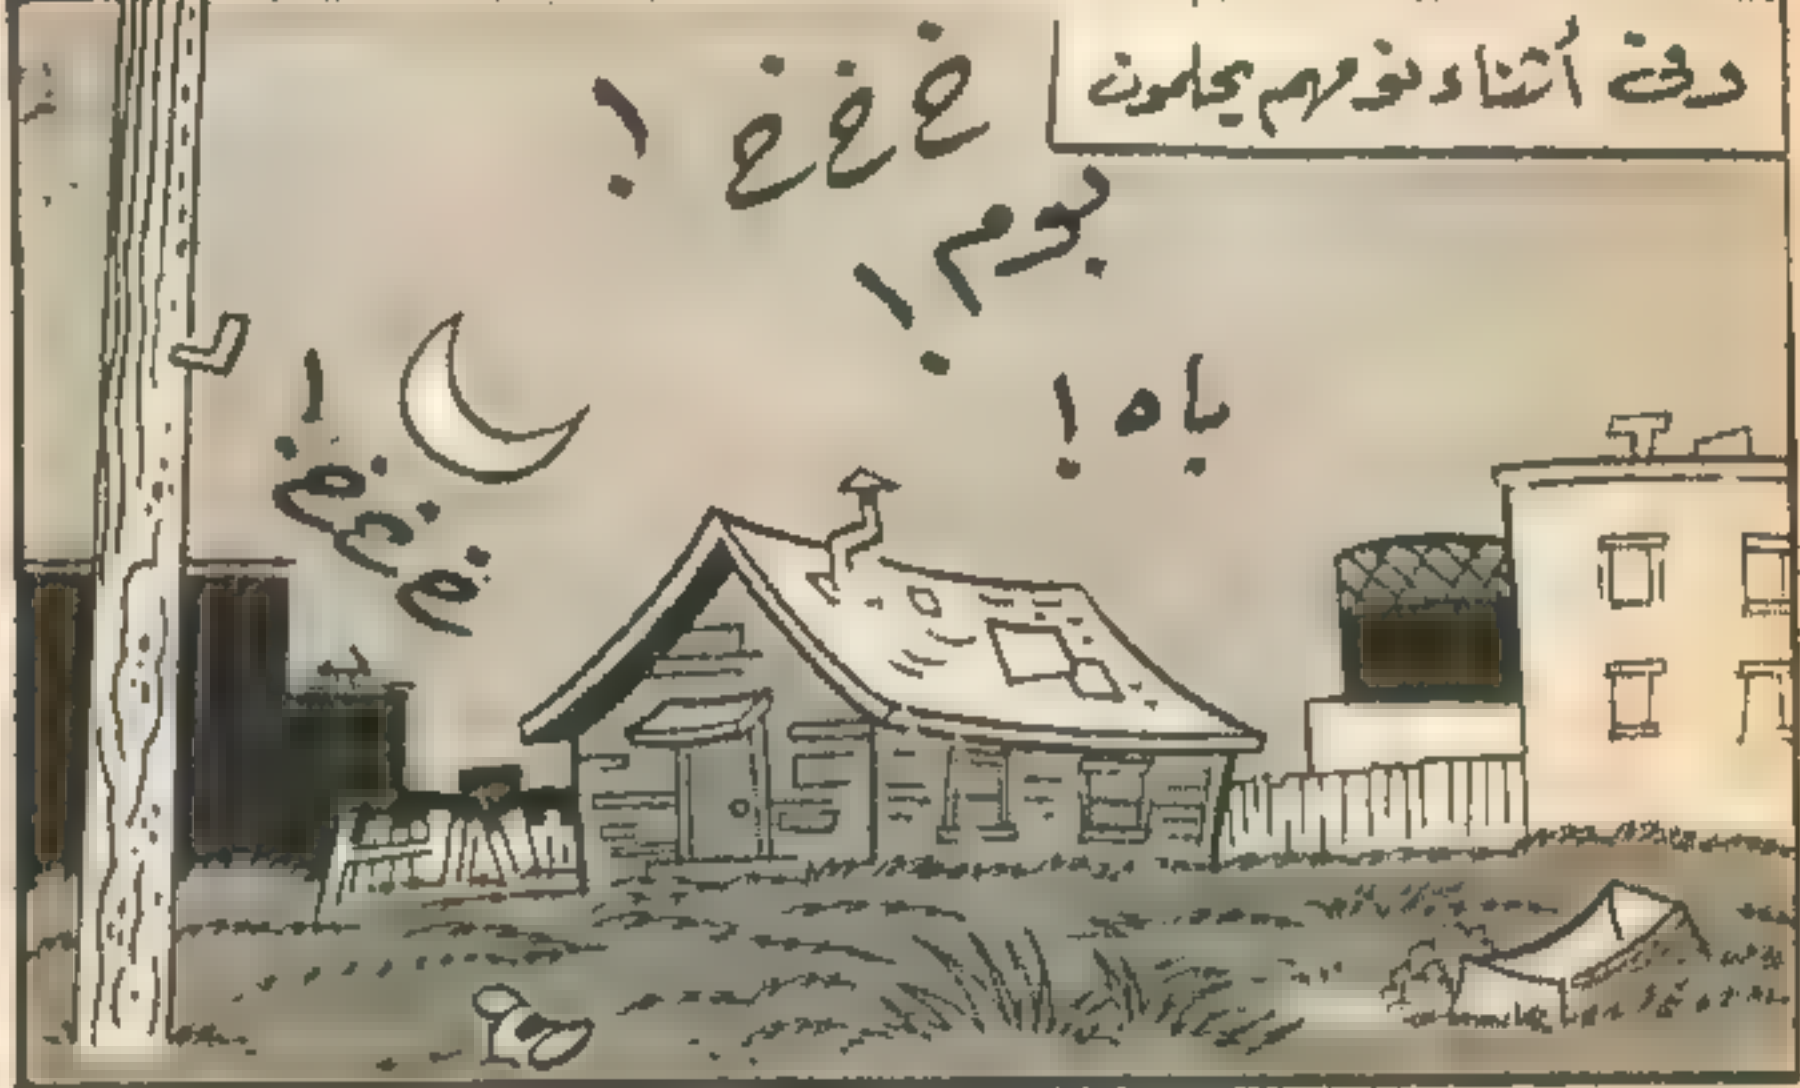 وفى أثناء نومهم يحلمون
خ خ خ !
بوم !
باه !